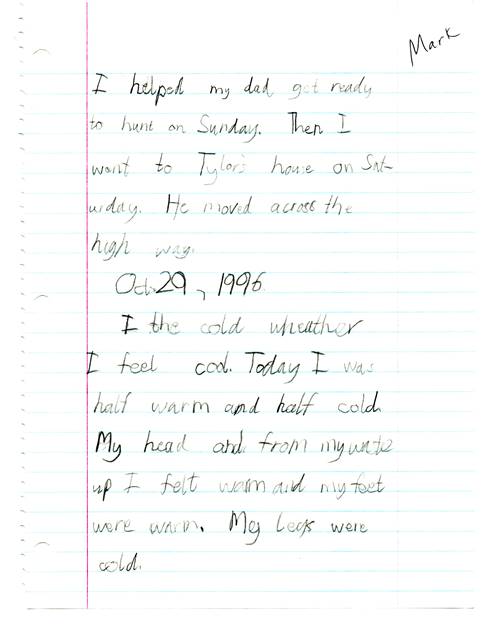 Mark
I helped my dad get ready
to hunt on Sunday. Then I
want to Tylor's house on Sat-
urday. He moved across the
high way.
Oct. 29, 1996
I the cold wheather
I feel cod. Today I was
half warm and half cold.
My head and from my waite
up I felt warm and my feet
were warm. My legs were
cold.